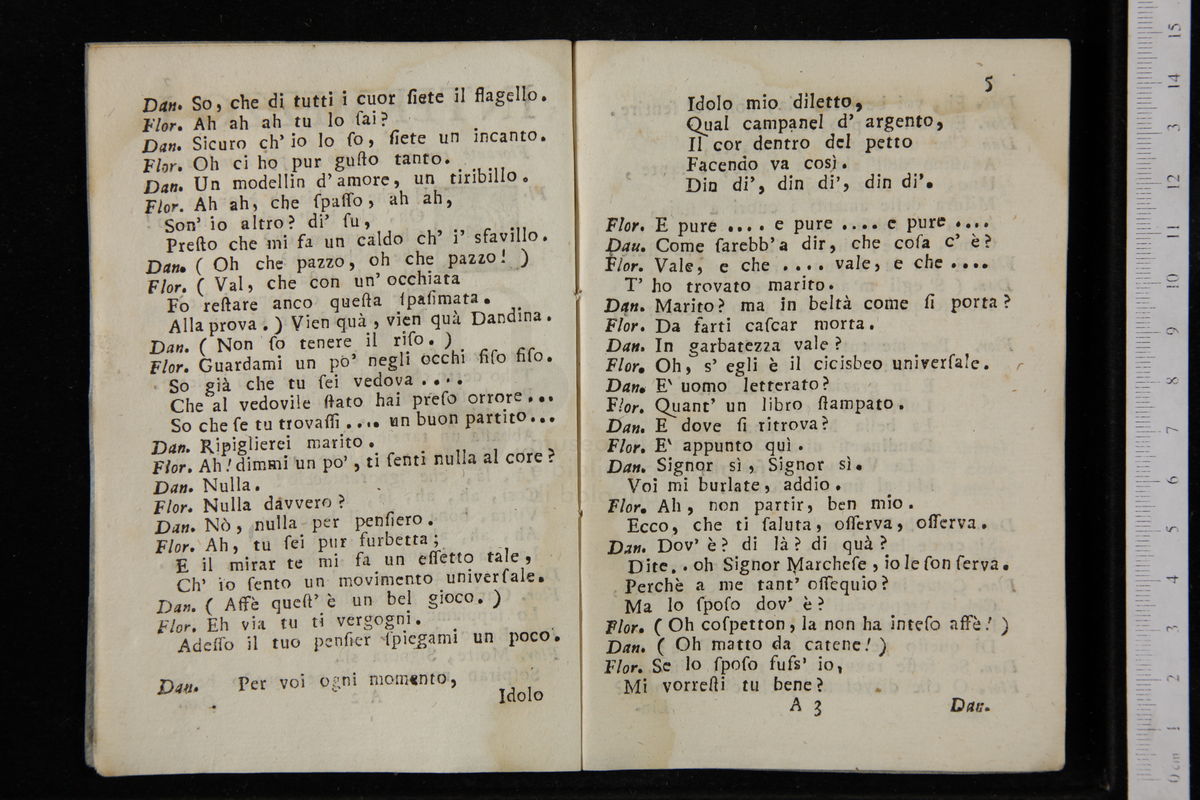 Dan. So, che di tutti i cuor ſiete il flagello.
Flor. Ah ah ah tu lo ſai?
Dan. Sicuro ch' io lo ſo, ſiete un incanto.
Flor. Oh ci ho pur guſto tanto.
Dan. Un modellin d'amore, un tiribillo.
Flor. Ah ah, che ſpaſſo, ah ah,
Son' io altro? di' ſu,
Preſto che mi fa un caldo ch' i' sfavillo.
Dan. ( Oh che pazzo, oh che pazzo! )
Flor. ( Val, che con un' occhiata
Fo reſtare anco queſta ſpaſimata.
Alla prova. ) Vien quà, vien quà Dandina.
Dan. ( Non ſo tenere il riſo. )
Flor. Guardami un pò' negli occhi fiſo fiſo.
So già che tu ſei vedova ....
Che al vedovile ſtato hai preſo orrore...
So che ſe tu trovaſſi .... un buon partito...
Dan. Ripiglierei marito.
Flor. Ah! dimmi un po', ti ſenti nulla al core?
Dan. Nulla.
Flor. Nulla davvero?
Dan. Nò, nulla per penſiero.
Flor. Ah, tu ſei pur furbetta;
E il mirar te mi fa un effetto tale,
Ch' io ſento un movimento univerſale.
Dan. ( Affè queſt' è un bel gioco. )
Flor. Eh via tu ti vergogni.
Adeſſo il tuo penſier ſpiegami un poco.
Dan. Per voi ogni momento,
Idolo
5
Idolo mio diletto,
Qual campanel d' argento,
Il cor dentro del petto
Facendo va così.
Din di', din di', din di'.
Flor. E pure .... e pure .... e pure ....
Dau. Come ſarebb'a dir, che coſa c' è?
Flor. Vale, e che .... vale, e che ....
T' ho trovato marito.
Dan. Marito? ma in beltà come ſi porta?
Flor. Da farti caſcar morta.
Dan. In garbatezza vale?
Flor. Oh, s' egli è il cicisbeo univerſale.
Dan. E' uomo letterato?
Flor. Quant' un libro ſtampato.
Dan. E dove ſi ritrova?
Flor. E' appunto quì.
Dan. Signor sì, Signor sì.
Voi mi burlate, addio.
Flor. Ah, non partir, ben mio.
Ecco, che ti ſaluta, oſſerva, oſſerva.
Dan. Dov' è? di là? di quà?
Dite.. oh Signor Marcheſe, io le ſon ſerva.
Perchè a me tant' oſſequio?
Ma lo ſpoſo dov' è?
Flor. ( Oh coſpetton, la non ha inteſo affè! )
Dan. ( Oh matto da catene! )
Flor. Se lo ſpoſo fuſs' io,
Mi vorreſti tu bene?
A 3
Dan.
15
14
13
12
11
10
9
8
7
6
5
4
3
2
1
0 cm